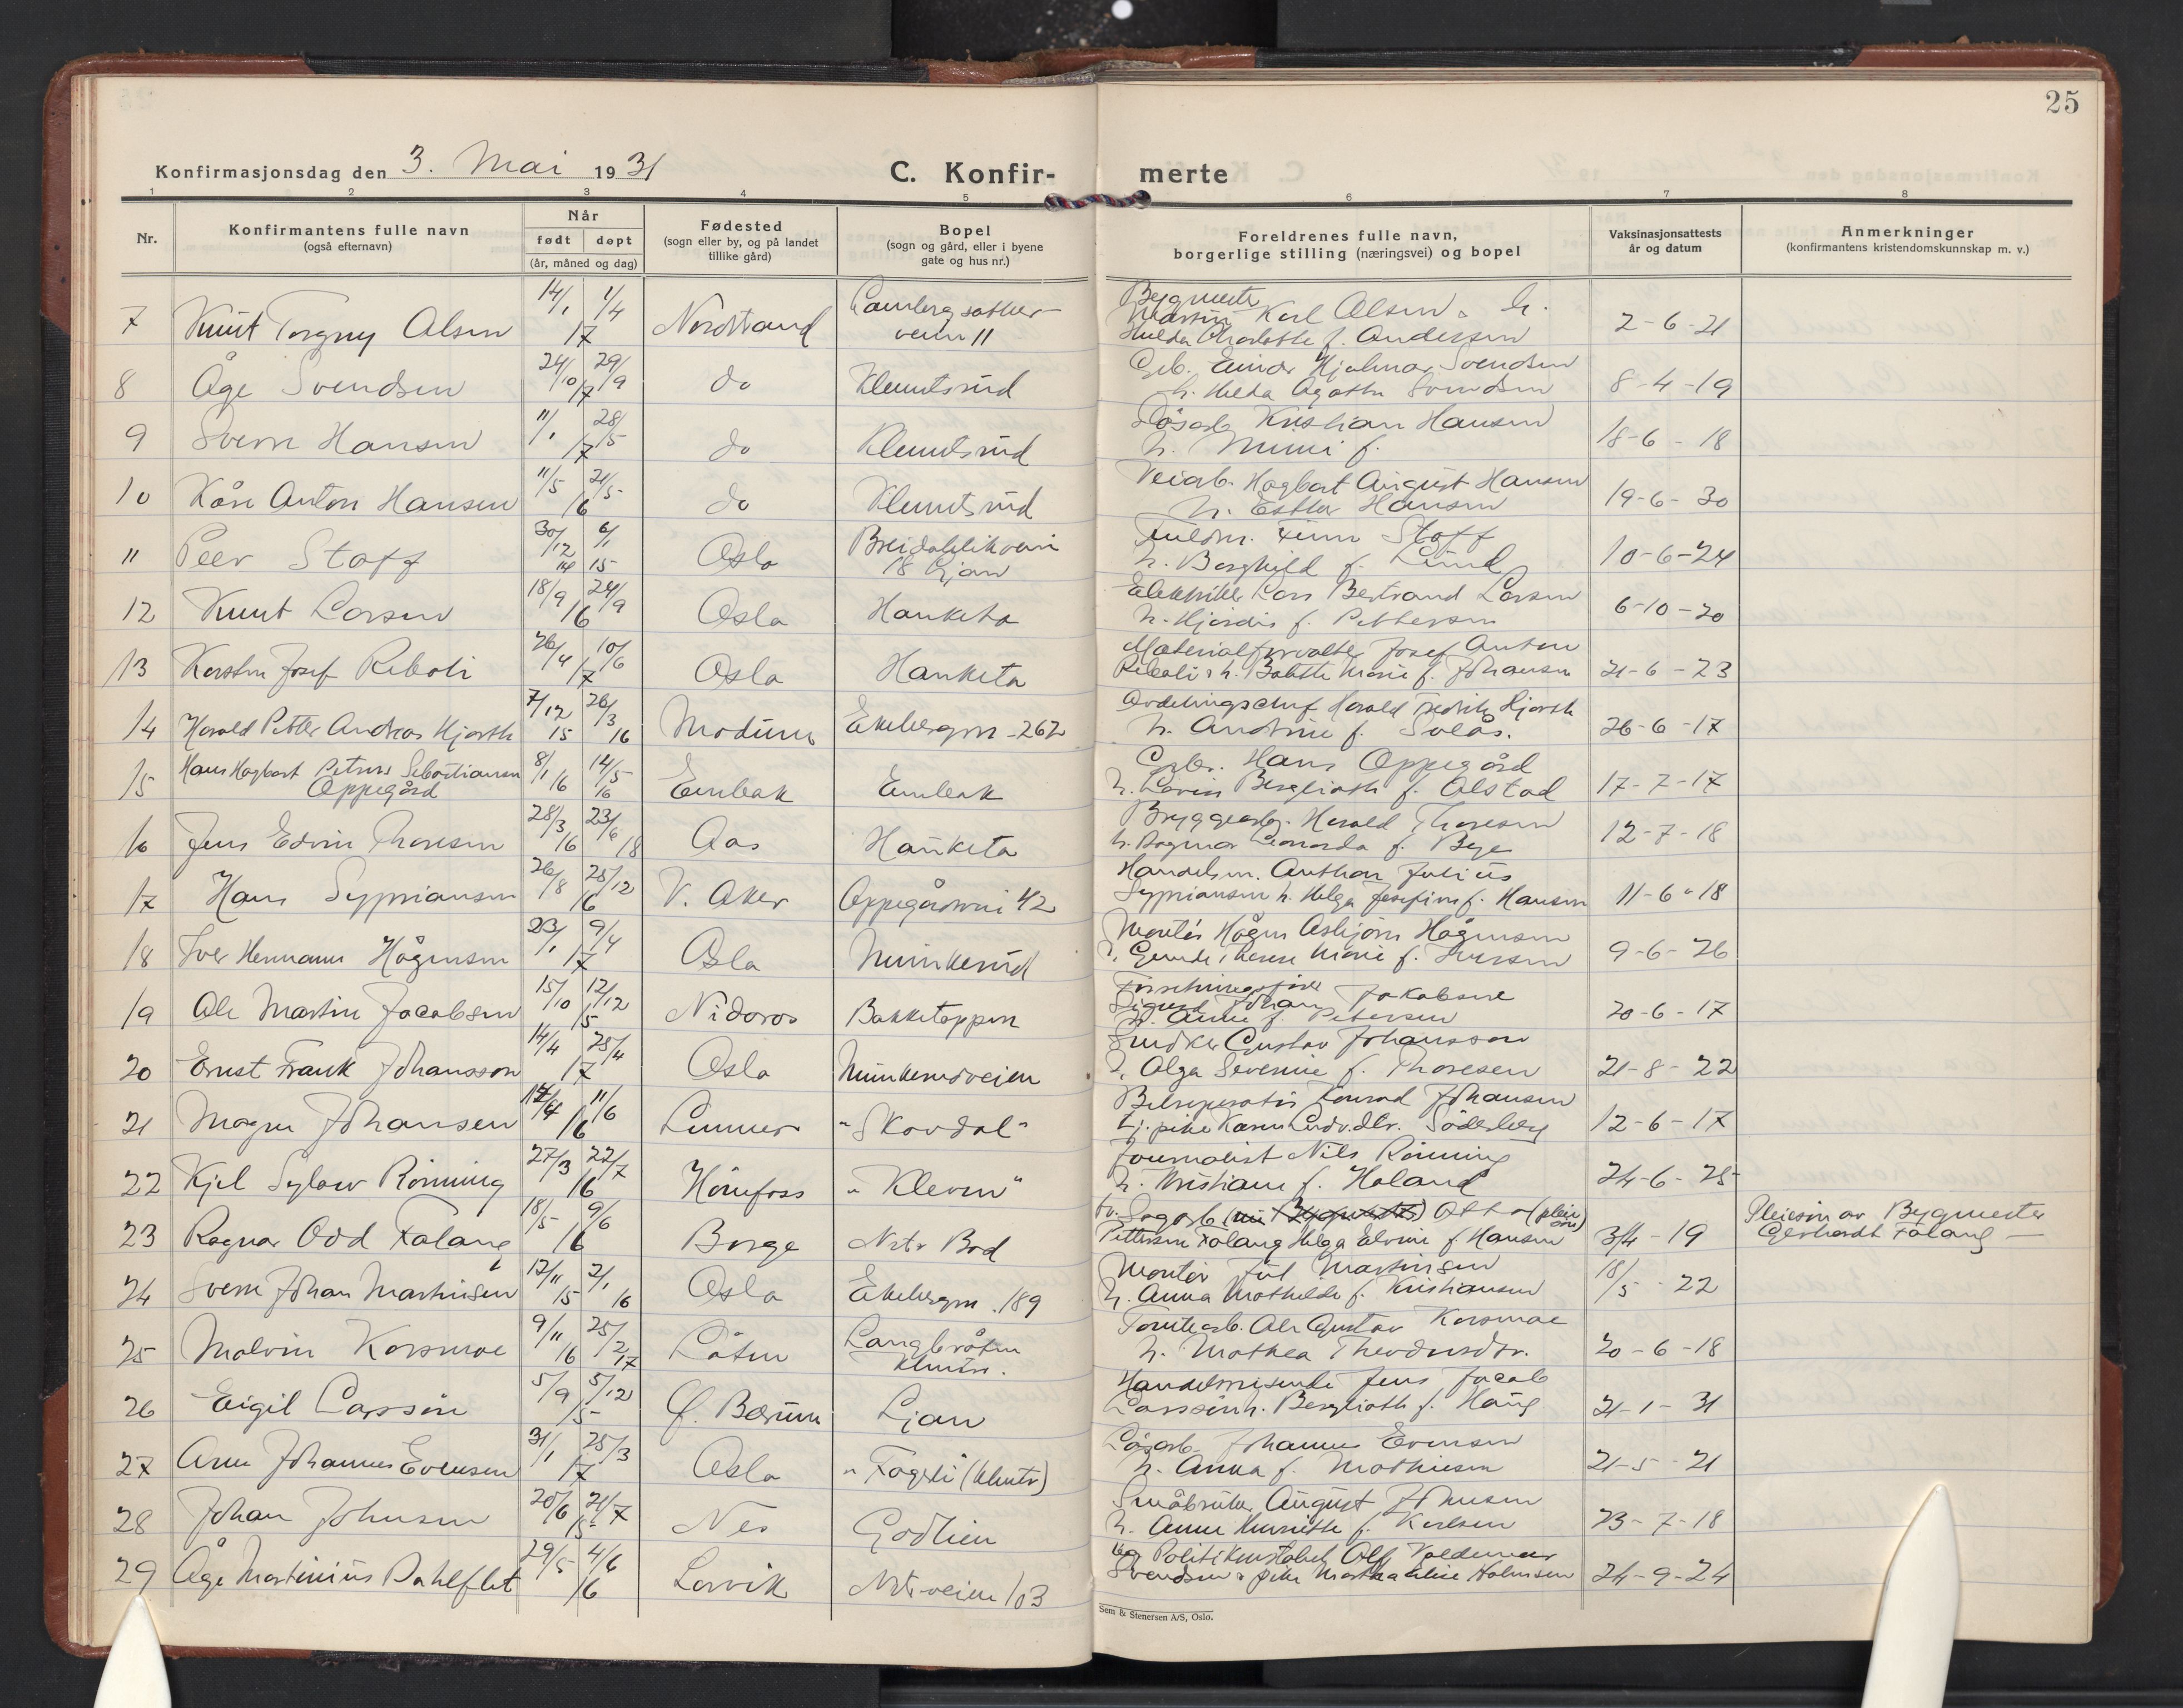 25
Konfirmasjonsdag den 3. Mai 1931
C. Konfir-merte
1 2 3 4 5 6 7 8
Nr.
Konfirmantens fulle navn
(også efternavn)
Når
født døpt
(år, måned og dag)
Fødested
(sogn eller by, og på landet
tillike gård)
Bopel
(sogn og gård, eller i byene
gate og hus nr.)
Foreldrenes fulle navn,
borgerlige stilling (næringsvei) og bopel
Vaksinasjonsattests
år og datum
Anmerkninger
(konfirmantens kristendomskunnskap m. v.)
Bygmester
7 Knut Torgny Olsen 14/1 1/4 17 Nordstrand veien 11 Karl Olsen 2-6-21
Hulda Charlotte f. Andersen
8 Åge Svendsen 24/10 29/9 17 do Klemetsrud Einar Hjalmar Svendsen 8-4-19
h. Hilda Agathe Svendsen
9 Sverre Hansen 11/1 28/5 17 do Klemetsrud Kristian Hansen 18-6-18
h. Mimi f.
10 Kåre Anton Hansen 11/5 21/5 16 do Klemetsrud Veiarb. Hagbart August Hansen 19-6-30
h. Esther Hansen
11 Peer Staff 30/12 14 6/1 15 Oslo 18 Ljan Finn Staff 10-6-24
h. Borghild f. Lund
12 Knut Larsen 18/9 24/9 16 Oslo Hauketo Elektriker Lars Bertrand Larsen 6-10-20
h. Hjørdis f. Pettersen
13 Karsten Josef Reboli 26/4 10/6 17 Oslo Hauketo Materialforvalter Josef Anton 21-6-23
Reboli & h. Marie f. Johansen
14 Harald Petter Andreas Hjorth 7/12 15 26/3 16 Modum Ekebergvn. 262 Avdelingschef Harald Fredrik Hjorth 26-6-17
h. Andrine f. Solås.
15 Hans Hagbart Petrus Sebastiansen 8/1 16 14/5 16 Enebak Enebak Hans Oppegård 17-7-17
Oppegård h. Berglioth f. Alstad
16 Jens Edvin Thoresen 28/3 16 23/6 18 Aas Hauketo Bryggearb. Harald Thoresen 12-7-18
h. Dagmar Leonarda f. Bye
17 Hans Sypriansen 26/8 25/12 16 V. Aker Oppegårdveien 42 Handelsm. Anthon Julius 11-6-18
Sypriansen h. Helga Josefine f. Hansen
18 Iver Hermann Hågensen 23/1 9/4 17 Oslo Munkerud Montør Hågen Asbjørn Hågensen 9-6-26
h. Therese Marie f. Iversen
19 Ole Martin Jacobsen 15/10 12/12 15 Nidaros Bakketoppen Sigurd Johan Jakobsen 20-6-17
h. Anne f. Petersen
20 Ernst Frank Johansson 14/4 25/4 17 Oslo Munkerudveien Snedker Gustav Johansson 21-8-22
h. Olga Severine f. Thoresen
21 Magne Johansen 14/4 11/6 16 Lunner "Skovdal" Konrad Johansen 12-6-17
tj. pike Karen Ludv.dtr. Söderberg
22 Kjel Sylow Rønning 27/3 22/7 16 Hönefoss "Kleven" Journalist Nils Rønning 24-6-25
h. Kristiane f. Holand
23 Ragnar Odd Falang 18/5 9/6 16 Borge Nstr Bad fv. Sagarb. Otto (pleiesön) 3/4-19 Pleiesön av Bygmester
Pettersen Falang Helga Elvine f. Hansen Gerhardt Falang
24 Sverre Johan Martinsen 12/11 15 2/1 16 Oslo Ekebergvn. 189 Montör Jul Martinsen 18/5-22
h. Anna Mathilde f. Kristiansen
25 Malvin Korsmoe 9/11 16 25/2 17 Løten Langbråten Tomtearb. Ole Gustav Korsmoe 20-6-18
h. Mathea Theodorsdtr.
26 Eigil Larssen 5/9 5/12 15 Ø. Bærum Ljan Handelsreisende Jens Jacob 21-1-31
Larssen h. Berglioth f. Haug
27 Arne Johannes Evensen 31/1 25/3 17 Oslo "Fagerli (Klmtr) Løsarb. Johannes Evensen 21-5-21
h. Anna f. Mathiesen
28 Johan Johnsen 20/6 21/7 15 Nes Godlien Småbruker August Johnsen 23-7-18
h. Anne Henriette f. Karlsen
29 Åge Martinius Dahlflet 29/5 4/6 16 Larvik Nstr.veien 103 Politikonstabel Alf Valdemar 24-9-24
Svendsen & pike Martha Elise Holmsen
Sem & Stenersen A/S, Oslo.